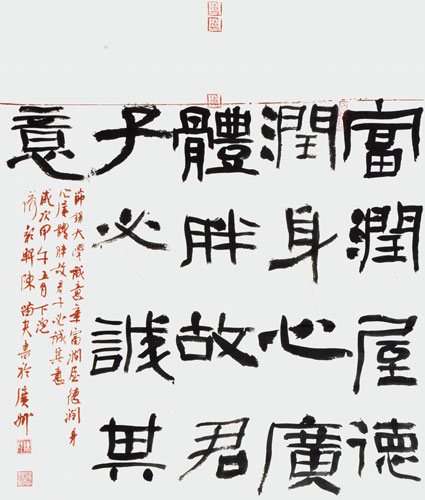 富潤屋德
潤身心廣
體胖故君
子必誠其
意
大學誠意章富潤屋德潤身
心廣體胖故君子必誠其意
歲次甲午五月下浣
軒陳書於廣州